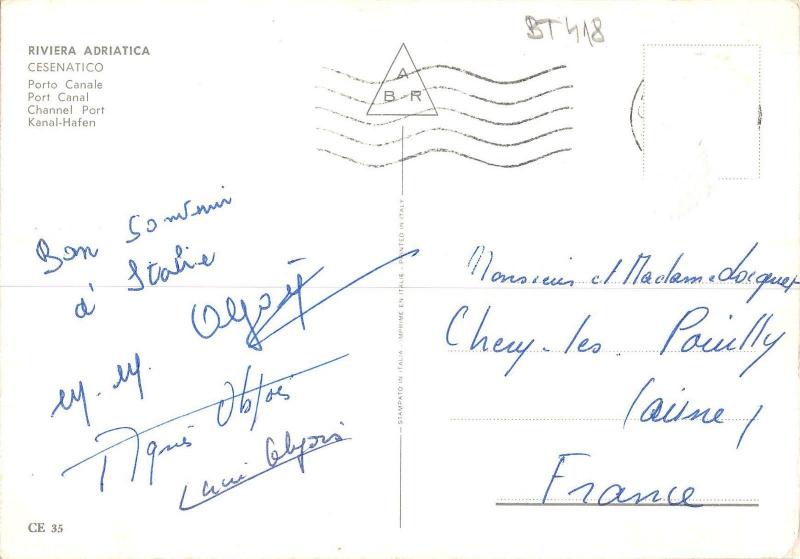 BT 418
RIVIERA ADRIATICA
CESENATICO
Porto Canale
Port Canal
Channel Port
Kanal-Hafen
A
B R
Bon Souvenir
d'Italie
M. M.
Agnès
STAMPATO IN ITALIA - IMPRIMÉ EN ITALIE - PRINTED IN ITALY
Monsieur et Madame Locquet
Chery-les Pouilly
(aisne)
France
CE 35